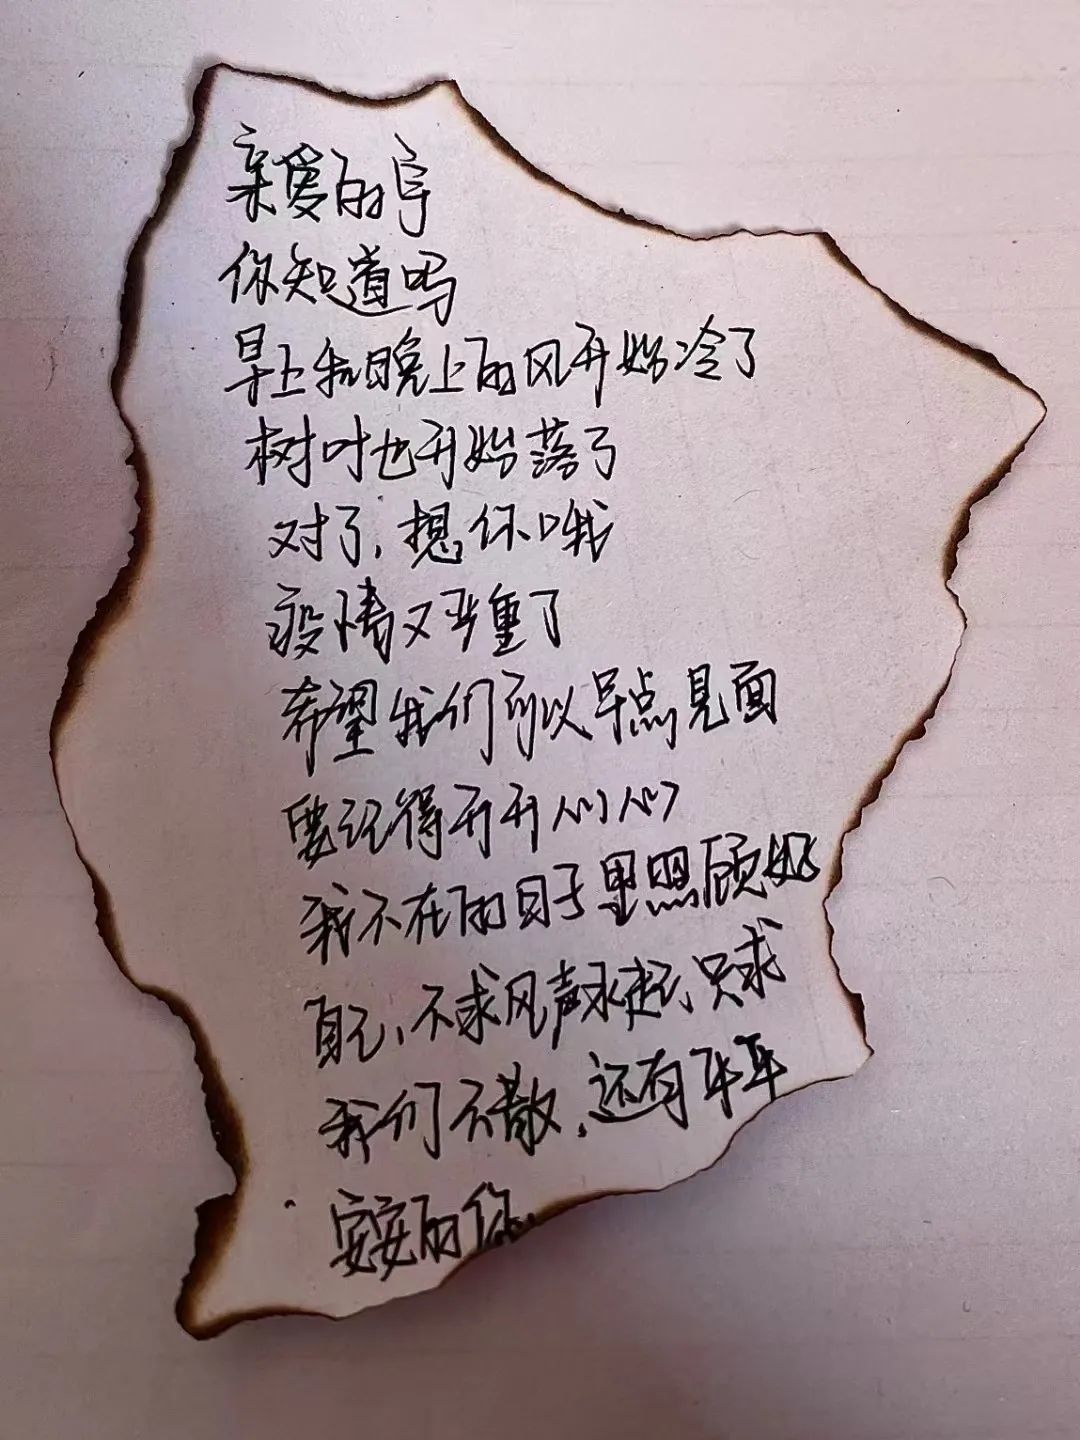 亲爱的阜
你知道吗
早上和晚上的风开始冷了
树叶也开始落了
对了，想你哦
疫情又严重了
希望我们可以早点见面
要记得开开心心
我不在的日子里照顾好
自己，不求风声水起，只求
我们不散，还有平平
安安的你